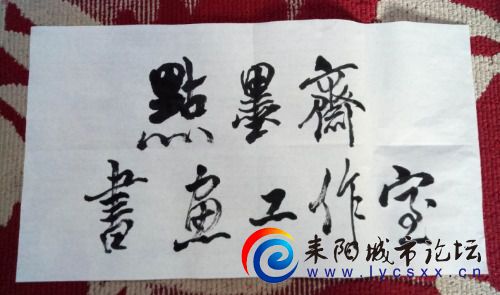 點墨齋
書畫工作室
耒阳城市论坛
www.lycsxx.cn